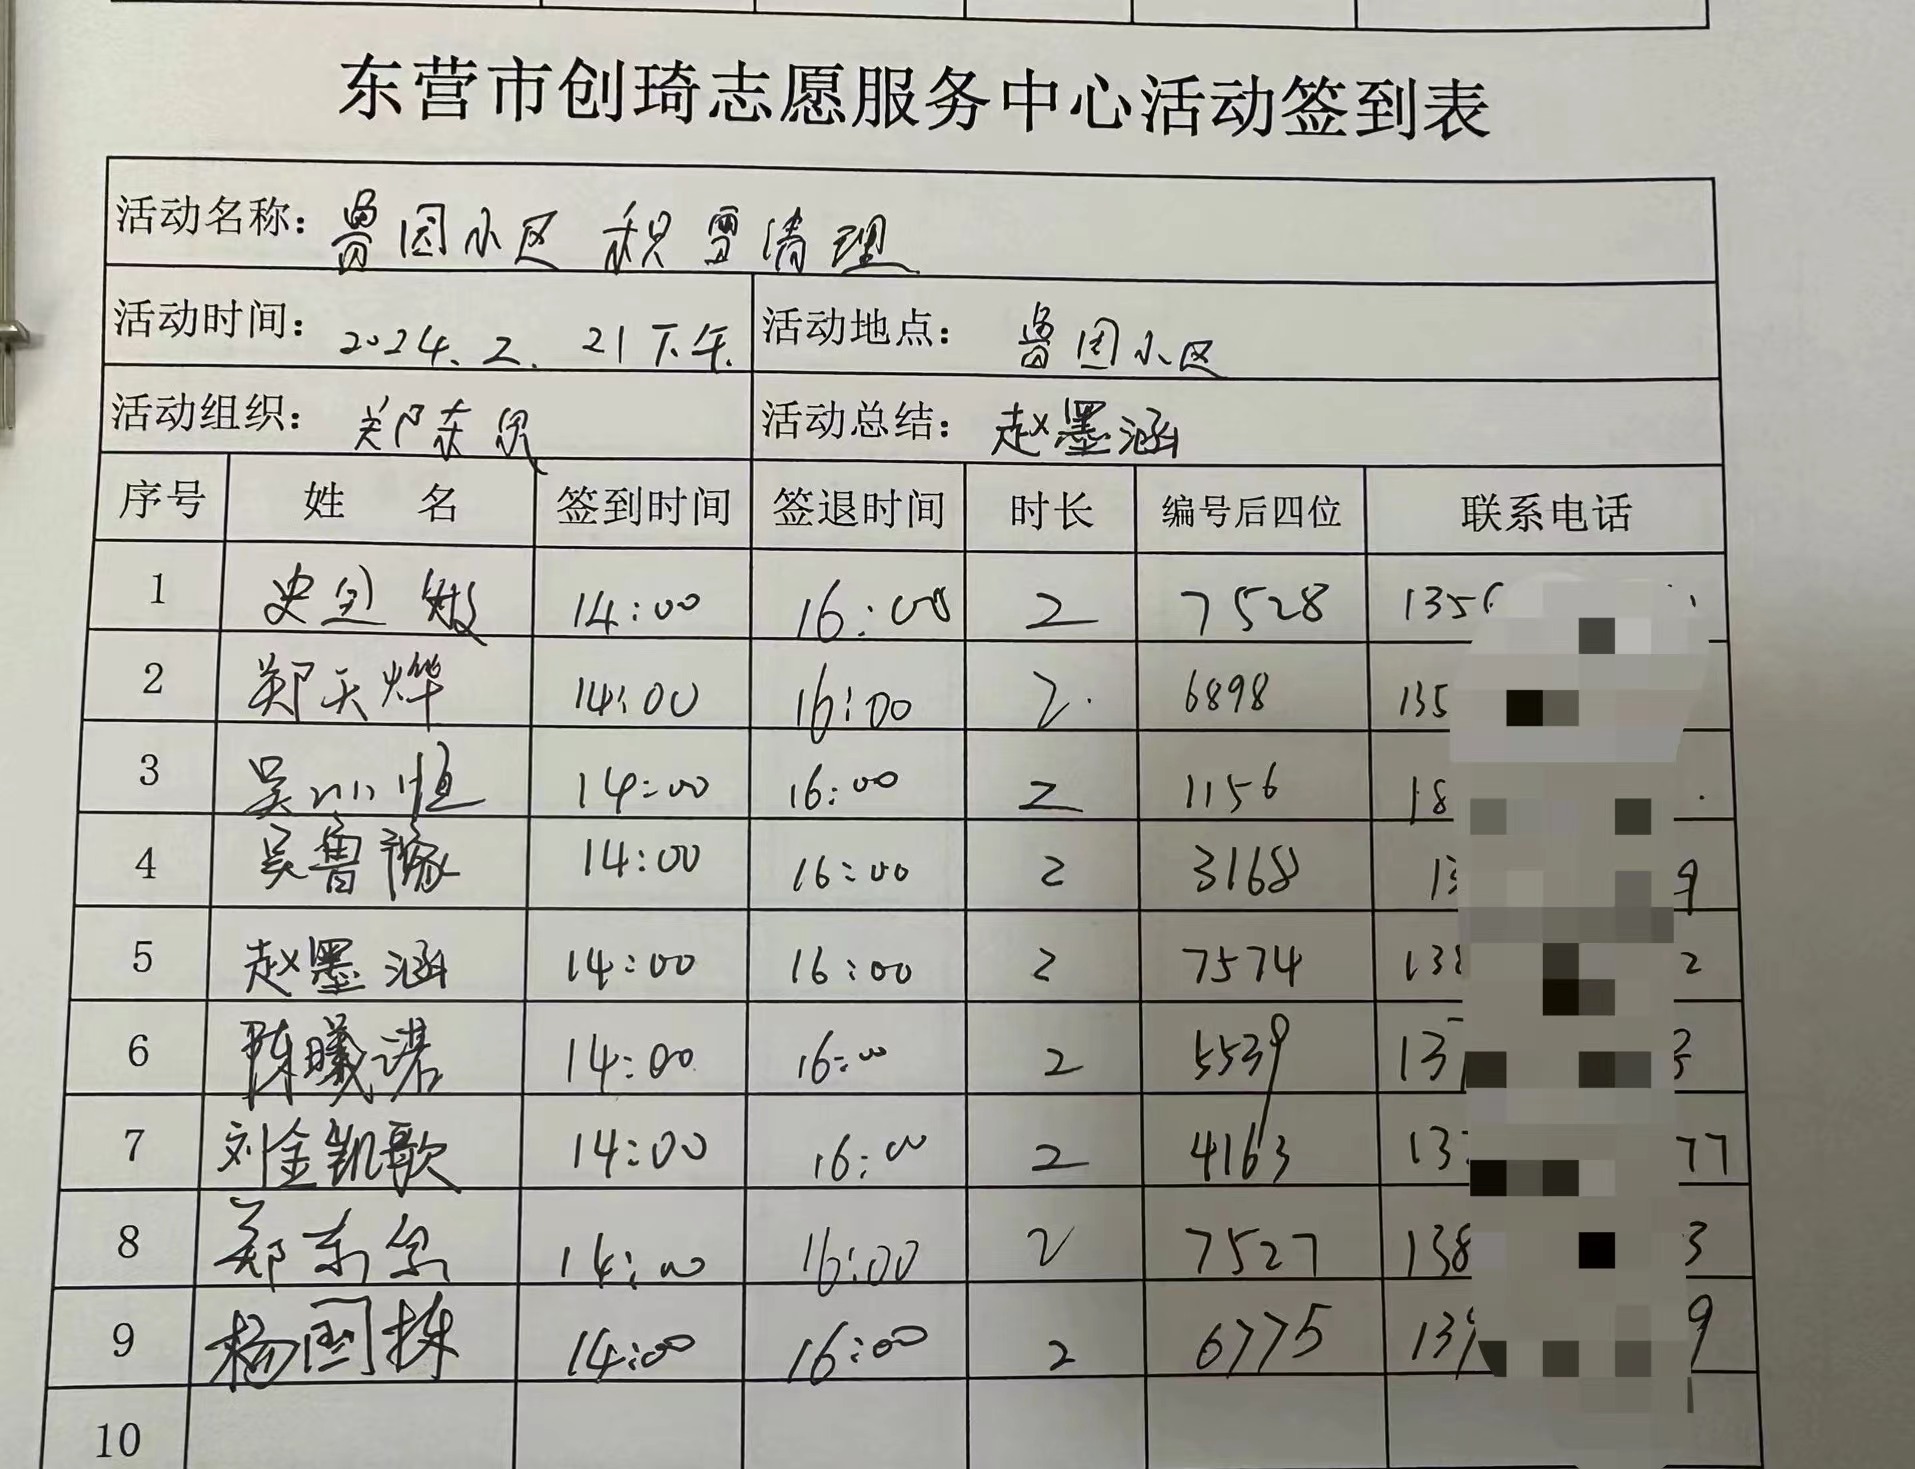 东营市创琦志愿服务中心活动签到表
活动名称: 鲁园小区 积雪清理
活动时间: 2024.2.21下午 活动地点: 鲁园小区
活动组织: 郑东 活动总结: 赵墨涵
序号 姓 名 签到时间 签退时间 时长 编号后四位 联系电话
1 史 14:00 16:00 2 7528 135
2 郑天烨 14:00 16:00 2 6898 135
3 吴 恒 14:00 16:00 2 1156 18
4 吴鲁豫 14:00 16:00 2 3168 13 9
5 赵墨涵 14:00 16:00 2 7574 138 2
6 陈曦诺 14:00 16:00 2 5539 137 3
7 刘金凯歌 14:00 16:00 2 4163 137 77
8 郑东 14:00 16:00 2 7527 138 3
9 杨国栋 14:00 16:00 2 6775 139 9
10